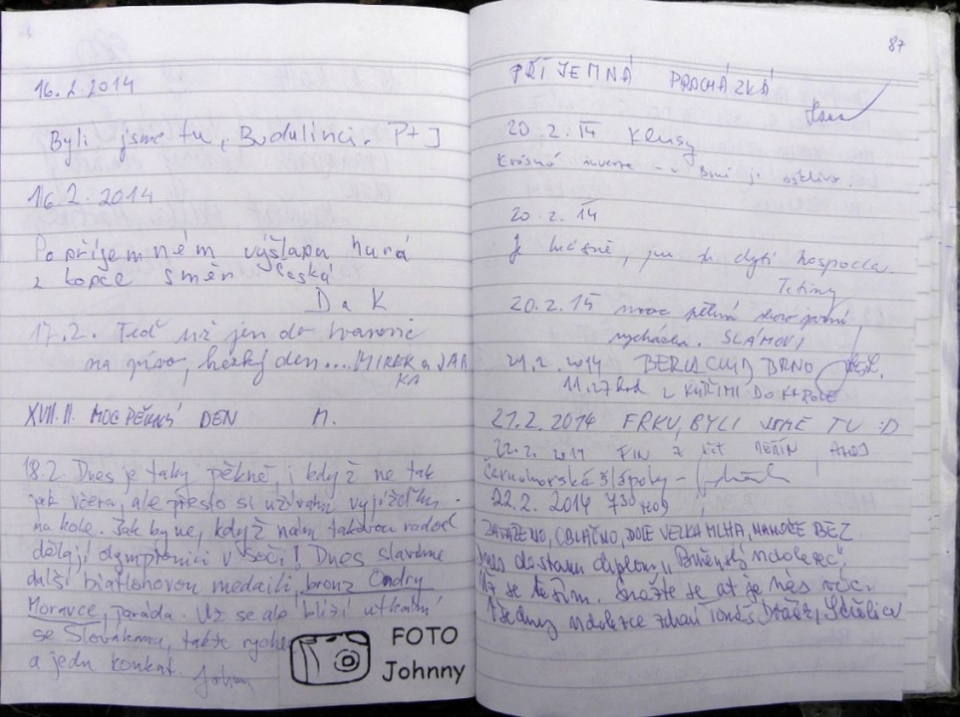 16.2.2014
Byli jsme tu, Budulínci. P+J
16.2.2014
Po příjemném výšlapu hurá
z kopce směr Česká
D a K
17.2. Teď už jen do Ivanovic
na pivo, hezký den.... MIREK a JAR
KA
XVIII.II. MOC PĚKNÝ DEN M.
18.2. Dnes je taky pěkně, i když ne tak
jak včera, ale přesto si užívám vyjížďku
na kole. Jak by ne, když nám takovou radost
dělají olympionici v Soči! Dnes slavíme
další biatlonovou medaili, bronz Ondry
Moravce, paráda. Už se ale blíží utkání
se Slovákama, takže
a jedu koukat. Johny
FOTO
Johnny
87
PŘÍJEMNÁ PROCHÁZKA
20.2.14 Klusy
Krásná inverze - v Brně je ošklivo.
20.2.14
Je krásně, jen tu chybí hospoda.
Tetiny
20.2.14 moc pěkná
vycházka. SLÁMOVI
21.2.2014 BRNO
11.27 hod z KUŘIMI DO
21.2.2014 FRKU, BYLI JSME TU :D
22.2.2014 FIN AHOJ
Černohorské šlápoty -
22.2.2014 7³⁰ HOD
ZATAŽENO, OBLAČNO, DOLE VELKÁ MLHA, NAHOŘE BEZ
Dnes dostanu diplom, "Brněnský ndolezec",
se těším. Snažte se ať je nás víc.
Všechny ndolezce zdraví Tomáš